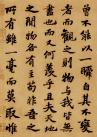 曾不能以一瞬自其不變
者而觀之則物與我皆無
盡也而又何羨乎且夫天地
之間物各有主苟非吾之
所有雖一毫而莫取惟